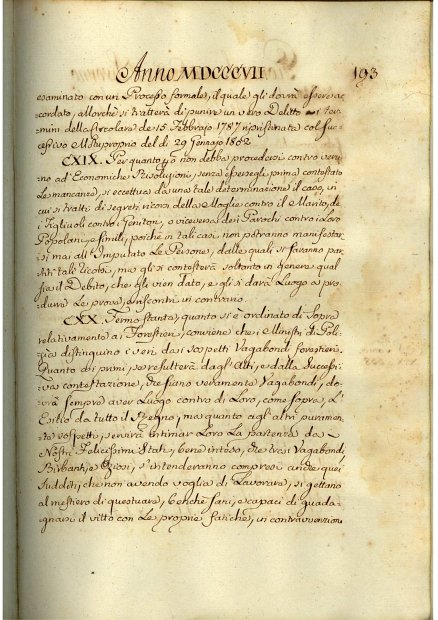 Anno MDCCCVII 193
esaminato con un Processo formale, il quale gli dovrà essere ac-
cordato, allorchè si tratterà di punire un vero Delitto ai ter-
mini della Circolare de' 15. Febbrajo 1787 ripristinata col suc-
cessivo Motuproprio del dì 29 Gennajo 1802
CXIX. Per quanto poi non debba procedersi contro veru-
no ad Economiche Risoluzioni, senza essergli prima contestate
Le mancanze, si eccettua da una tale determinazione il caso, in
cui si tratti di segreti ricorsi della Moglie contro il Marito, de
i Figliuoli contro i Genitori, o viceversa dei Parochi contro i Loro
Popolani, e simili, poichè in tali casi non potranno manifestar-
si mai all' Imputato Le Persone, dalle quali si saranno par-
titi tali ricorsi, ma gli si contesterà soltanto in genere qual
sia il Debito, che gli vien dato, e gli si darà Luogo a pro-
durre Le prove, e riscontri in contrario.
CXX. Fermo stante, quanto si è ordinato di sopra
relativamente ai Forestieri, conviene che i Ministri di Poli-
zia distinguino i veri da i sospetti Vagabondi forestieri.
Quanto ai primi, se resulterà dagl' Atti, e dalla successi-
va contestazione, che siano veramente Vagabondi, do-
vrà sempre aver Luogo contro di Loro, come sopra, L'
Esilio da tutto il Regno, ma quanto agl' altri puramen-
te sospetti, servirà intimar Loro La partenza da
Nostri Felicissimi Stati, bene inteso, che tra i Vagabondi,
Birbanti, e Oziosi, s' intenderanno compresi anche quei
Sudditi, che non avendo voglia di Lavorare, si gettano
al mestiero di questuare, benchè sani, e capaci di guada-
gnarsi il vitto con Le proprie fatiche, in contravvenzione